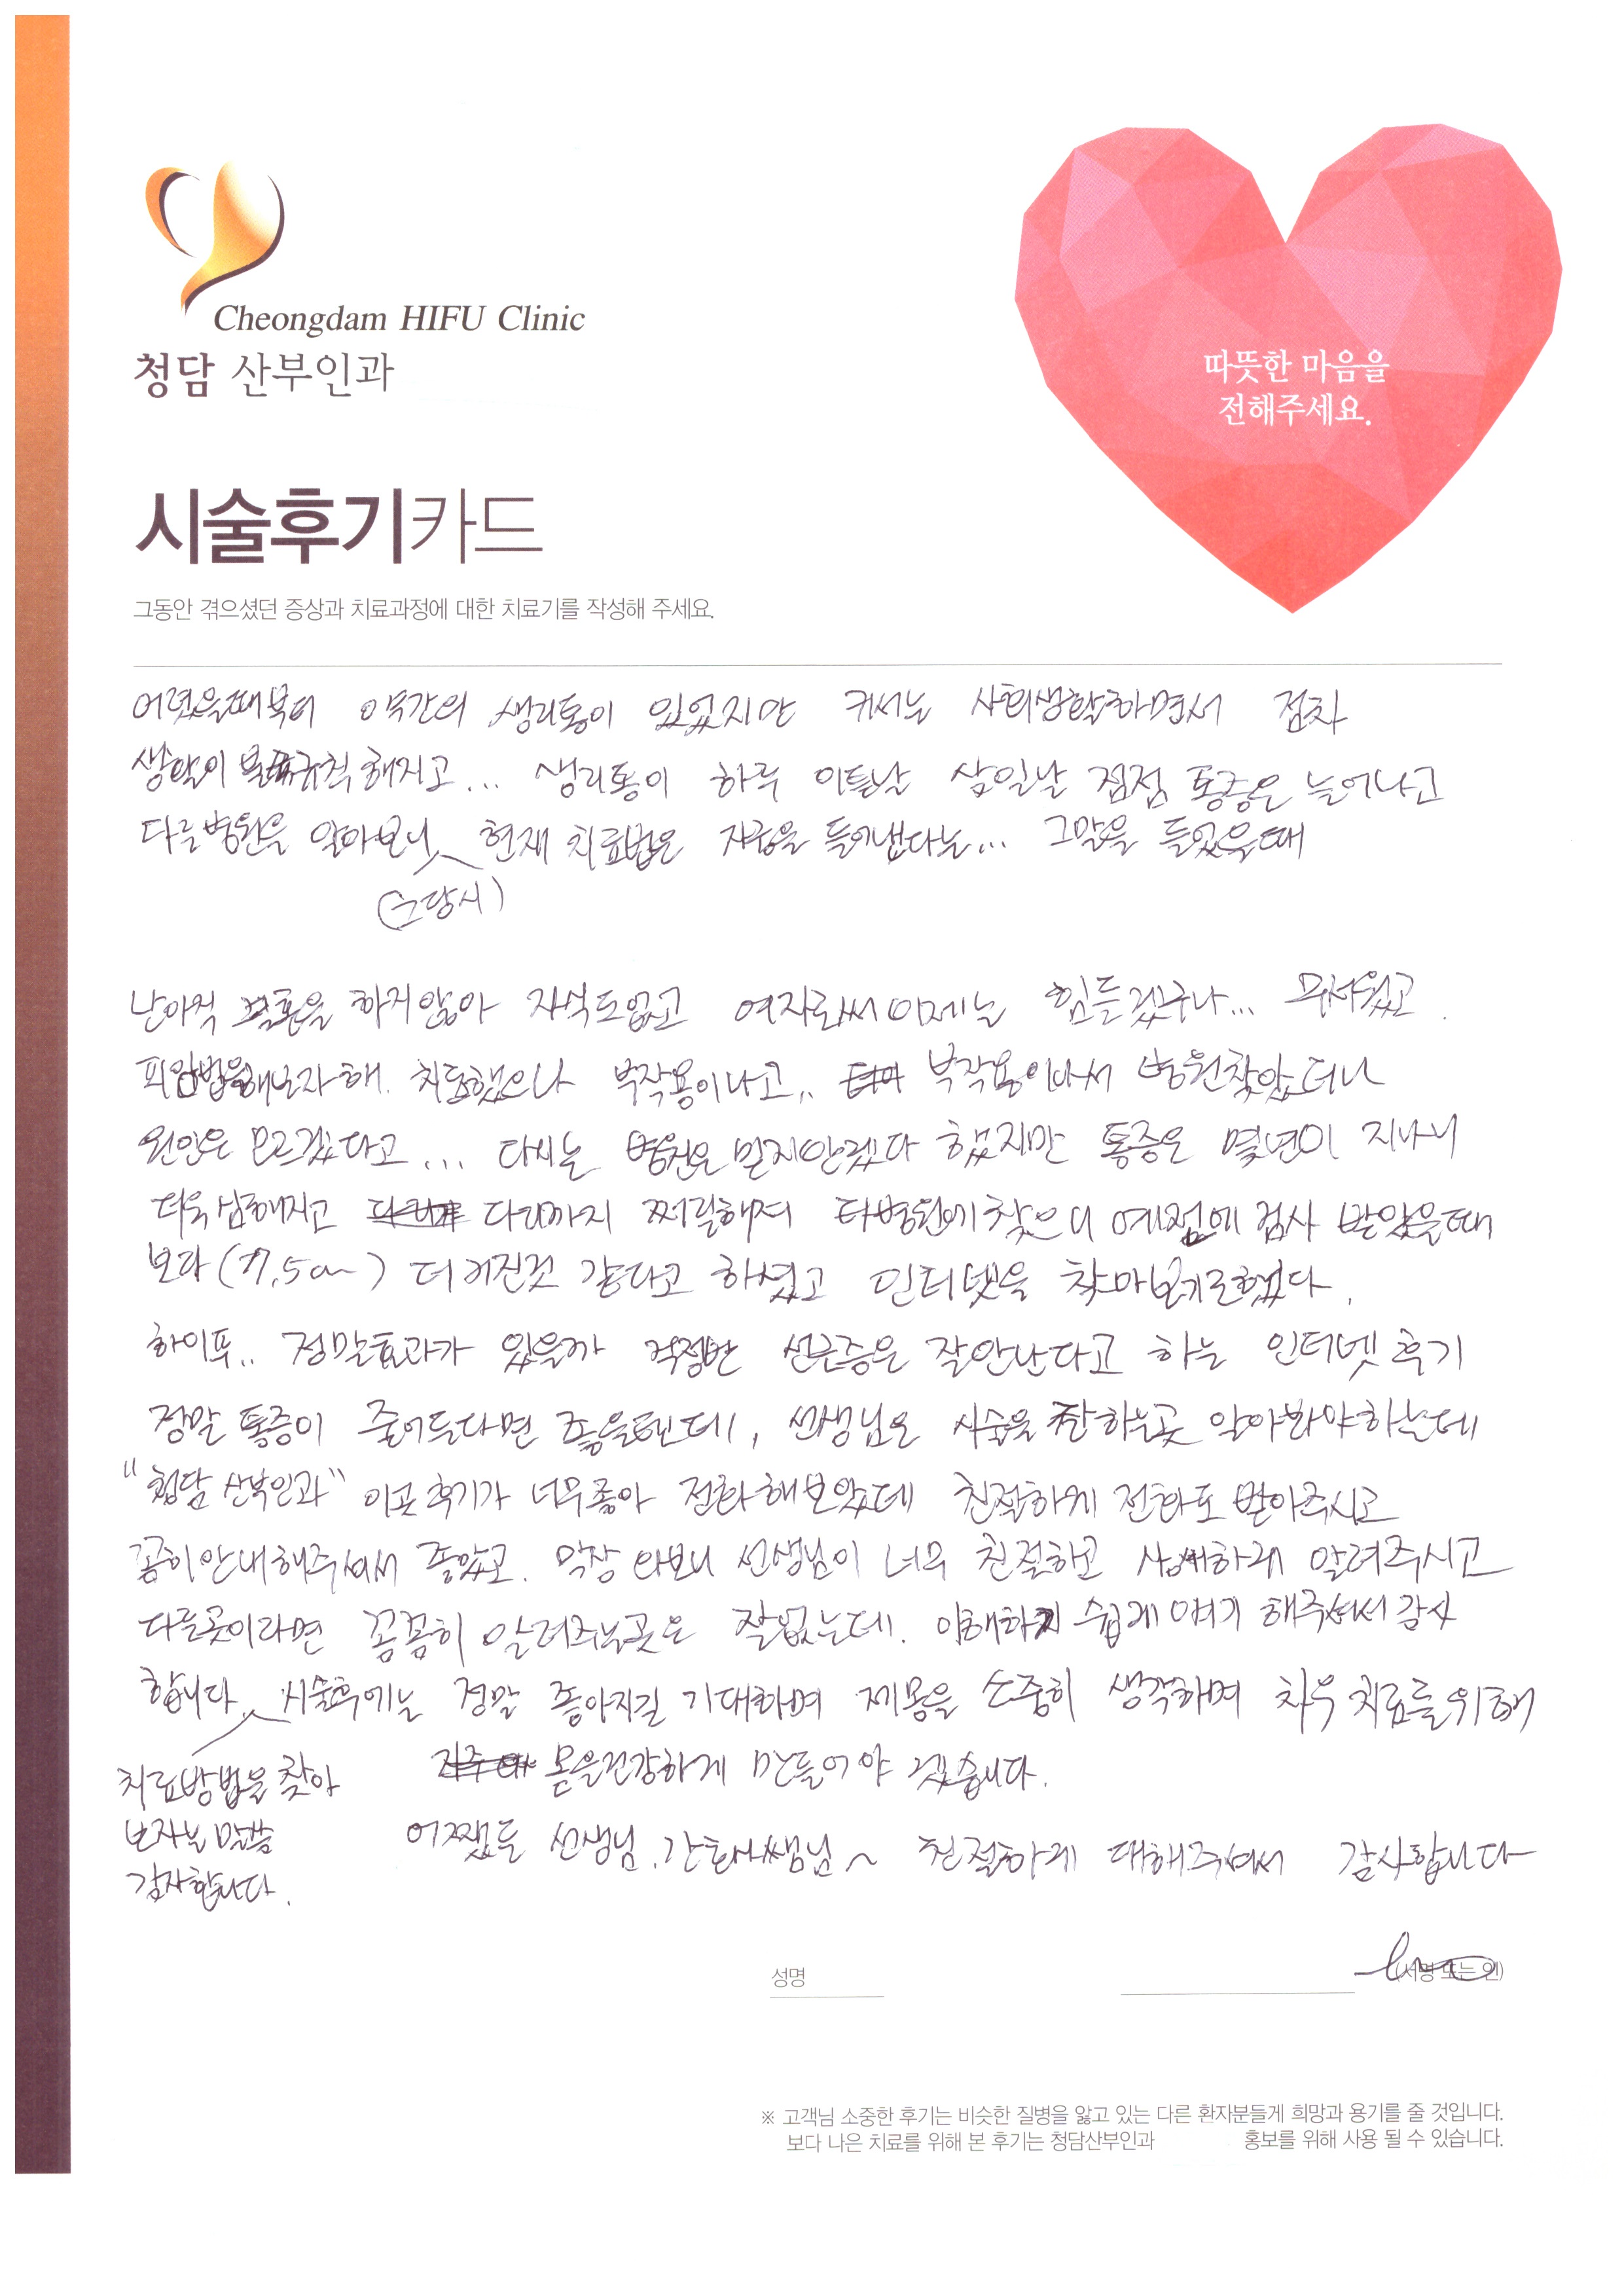 Cheongdam HIFU Clinic
청담 산부인과
따뜻한 마음을
전해주세요.
시술후기카드
그동안 겪으셨던 증상과 치료과정에 대한 치료기를 작성해 주세요.
어렸을때부터 약간의 생리통이 있었지만 커서는 사회생활하면서 점차
생활이 불규칙해지고... 생리통이 하루 이틀날 삼일날 점점 통증은 늘어나고
다른병원을 알아보니 현재 치료법은 자궁을 들어낸다는... 그말을 들었을때
(그당시)
난아직 결혼을 하지않아 자식도없고 여자로써 이제는 힘들겠구나... 무서웠고.
피임법을해보자해. 치료했으나 부작용이나고.. 부작용이나서 병원찾았더니
원인은 모르겠다고... 다시는 병원은 믿지안겠다 했지만 통증은 몇년이 지나니
더욱 심해지고 다리까지 쩌릿해져 타병원에 찾으니 예전에 검사 받았을때
보다 (7.5cm) 더 커진것 같다고 하셨고 인터넷을 찾아보기로했다.
하이푸.. 정말효과가 있을까 걱정반 선근증은 잘안난다고 하는 인터넷 후기
정말 통증이 줄어든다면 좋을텐데, 선생님은 시술을 잘하는곳 알아봐야하는데
"청담 산부인과" 이곳 후기가 너무좋아 전화해보았는데 친절하게 전화도 받아주시고
꼼히안내해주셔서 좋았고. 막상 와보니 선생님이 너무 친절하고 상세하게 알려주시고
다른곳이라면 꼼꼼히 알려주는곳은 잘없는데. 이해하기 쉽게 얘기 해주셔서 감사
합니다. 시술후에는 정말 좋아지길 기대하며 제몸을 소중히 생각하며 차후 치료를위해
치료방법을 찾아 몸을건강하게 만들어야 겠습니다.
보자는 말씀 어쨌든 선생님, 간호사쌤님~ 친절하게 대해주셔서 감사합니다
감사합니다.
성명
(서명 또는 인)
※ 고객님 소중한 후기는 비슷한 질병을 앓고 있는 다른 환자분들게 희망과 용기를 줄 것입니다.
보다 나은 치료를 위해 본 후기는 청담산부인과 홍보를 위해 사용 될 수 있습니다.